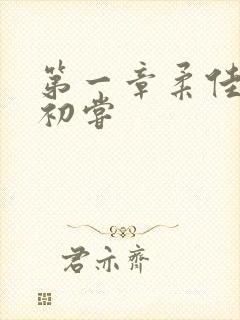 第一章柔佳
初尝
君亦齐